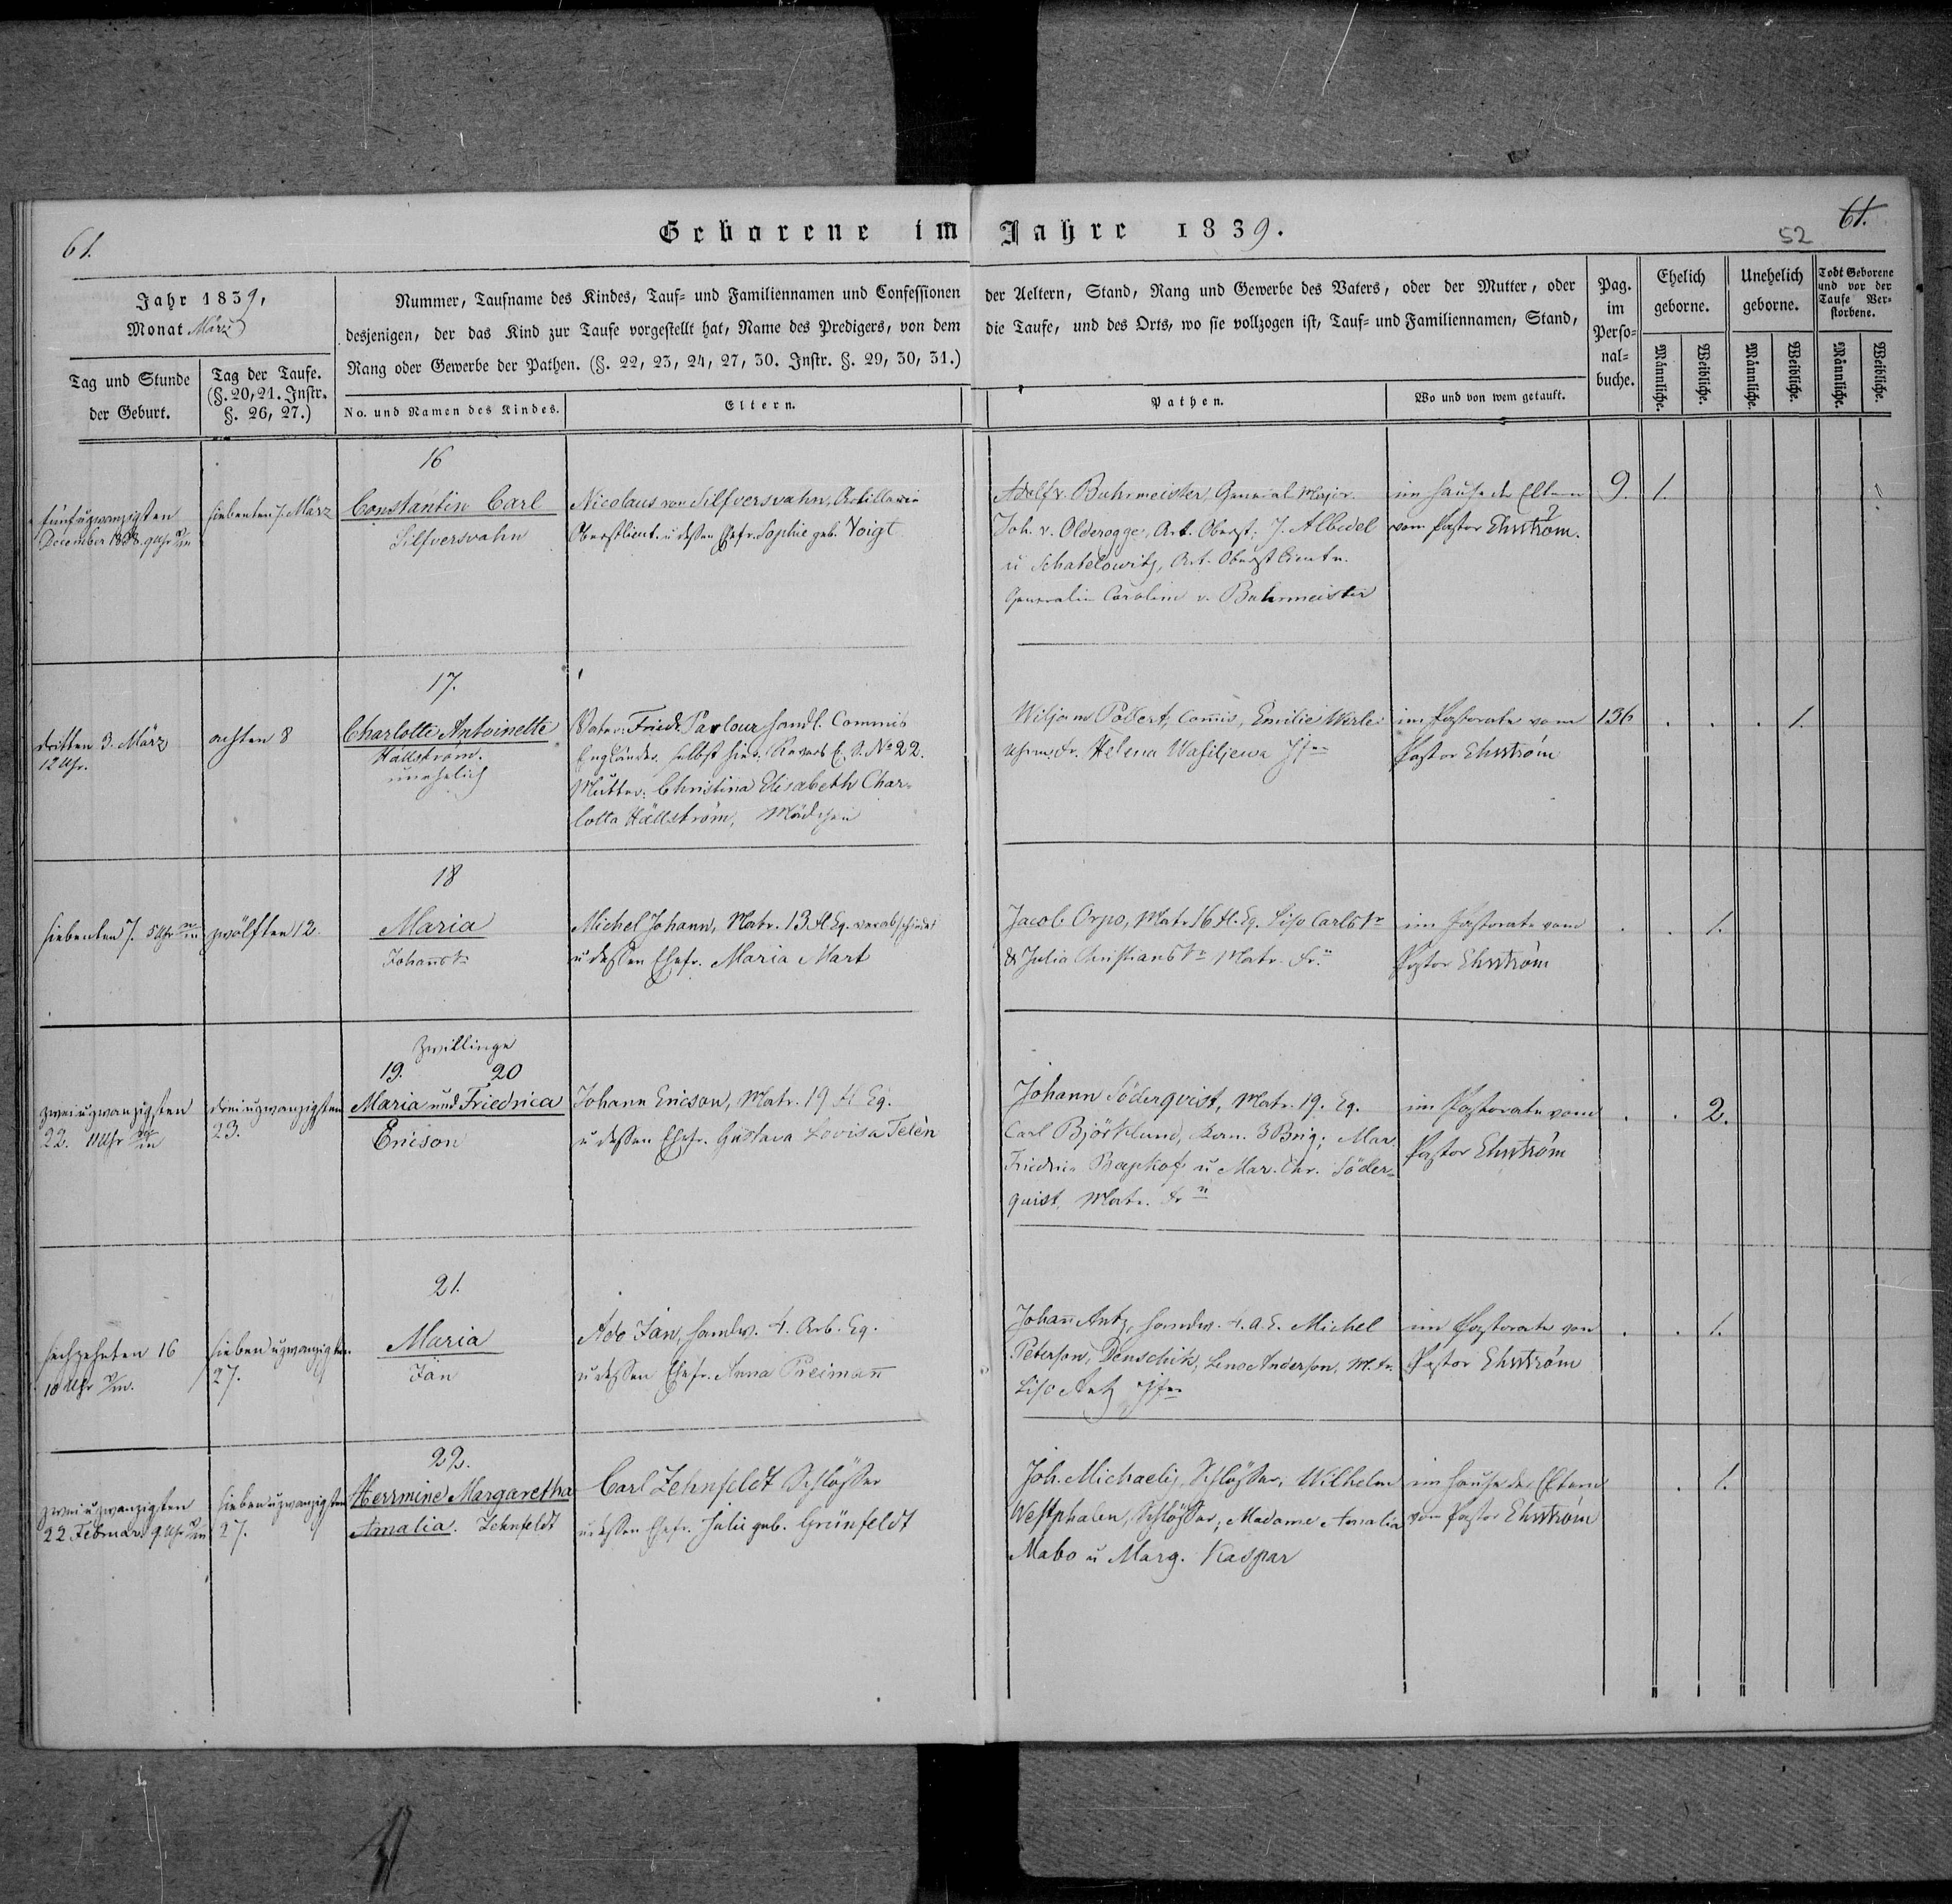 61.
Geborene im Jahre 1839.
52
61.
Jahr 1839,
Monat März
Tag und Stunde
der Geburt.
Tag der Taufe.
(§. 20, 21. Instr.
§. 26, 27.)
Nummer, Taufname des Kindes, Tauf- und Familiennamen und Confessionen der Aeltern, Stand, Rang und Gewerbe des Vaters, oder der Mutter, oder
desjenigen, der das Kind zur Taufe vorgestellt hat, Name des Predigers, von dem die Taufe, und des Orts, wo sie vollzogen ist, Tauf- und Familiennamen, Stand,
Rang oder Gewerbe der Pathen. (§. 22, 23, 24, 27, 30. Instr. §. 29, 30, 31.)
No. und Namen des Kindes.
Eltern.
Pathen.
Wo und von wem getauft.
Pag.
im
Perso-
nal-
buche.
Ehelich
geborne.
Unehelich
geborne.
Todt Geborene
und vor der
Taufe Ver-
storbene.
Männliche.
Weibliche.
Männliche.
Weibliche.
Männliche.
Weibliche.
fünfuzwanzigsten
December 1838. 9 Uhr
siebenten 7. März
16
Constantin Carl
Silfversvahn
Nicolaus von Silfversvahn, Artillerie
Oberstlieut. u dessen Ehefr. Sophie geb. Voigt
Adolf v. Buhrmeister, General Major.
Joh. v. Olderogge, Art. Oberst. J. Albedel
u Schatelowitz, Art. Oberstlieutn.
Generalin Caroline v. Buhrmeister
im Hause der Eltern
vom Pastor Ehrström.
9.
1.
dritten 3. März
12 Uhr.
achten 8
17.
Charlotte Antoinette
Hällström.
unehelich
Vater: Friedr. Parlour Handl. Commis
Engländer. selbst hier. No 22.
Mutter: Christina Elisabeth Char-
lotta Hällström, Mädchen
Wiljam Pollert, Commis, Emilie Werle
Uhrm. Fr. Helena Wasiljewa
im Pastorate vom
Pastor Ehrström
136
1.
siebenten 7. 5 Uhr
zwölften 12
18
Maria
Johanns
Michel Johann, Matr. 13 Fl. Eq. verabschiedet
u dessen Ehefr. Maria Mart
Jacob Orpo, Matr. 16 Fl. Eq. Liso Carls
& Julia Christians Matr. Fr.
im Pastorate vom
Pastor Ehrström
1.
zweiuzwanzigsten
22. 11 Uhr
dreiuzwanzigsten
23.
Zwillinge
19. 20
Maria und Friedrica
Ericson
Johann Ericson, Matr. 19 Fl Eq.
u dessen Ehefr. Gustava Lovisa Telèn
Johann Söderqvist, Matr. 19. Eq.
Carl Björklund, 3 Brig; Mar.
u Mar. Chr. Söder-
quist, Matr. Fr
im Pastorate vom
Pastor Ehrström
2.
sechzehnten 16
10 Uhr
siebenuzwanzigsten
27.
21.
Maria
Jän
Ado Jän, Handw. 4. Arb. Eq.
u dessen Ehefr. Anna Preimann
Johann Antz, Handw. 4. A. E. Michel
Peterson, Denschik, Lena Anderson, M. Fr.
Liso Antz
im Pastorate von
Pastor Ehrström
1.
zweiuzwanzigsten
22 Februar 9 Uhr
siebenuzwanzigsten
27.
22.
Herrmine Margaretha
Amalia. Lehnfeldt
Carl Lehnfeldt Schlösser
u dessen Ehefr. Julie geb. Grünfeldt
Joh. Michaelis, Schlösser, Wilhelm
Westphalen, Schlösser; Madame Amalia
Mabo u Marg. Kaspar
im Hause der Eltern
vom Pastor Ehrström
1.